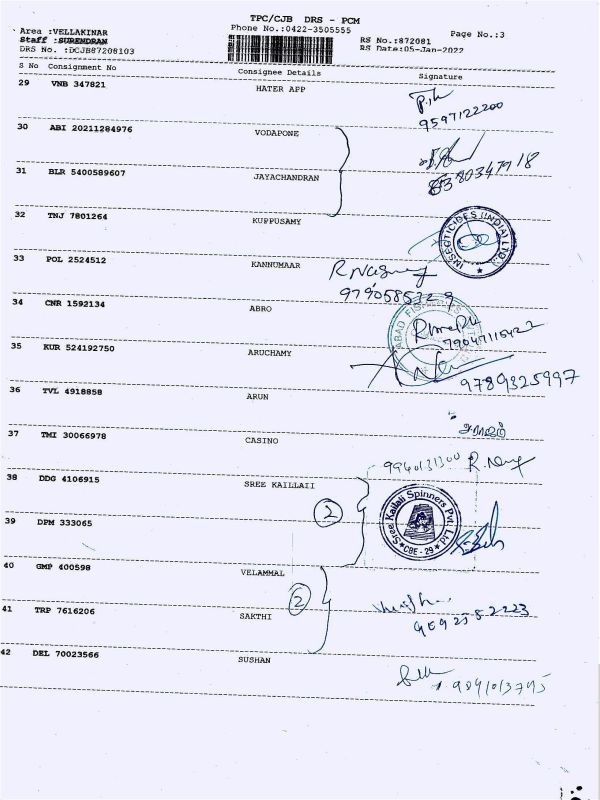 TPC/CJB DRS - PCM
Phone No.:0422-3505555
Page No.:3
Area :VELLAKINAR
Staff :SURENDRAN
DRS No. :DCJB87208103
RS No.:872081
RS Date:05-Jan-2022
S No Consignment No Consignee Details Signature
29 VNB 347821 HATER APP
9597122200
30 ABI 20211284976 VODAPONE
31 BLR 5400589607 JAYACHANDRAN
6380347918
32 TNJ 7801264 KUPPUSAMY
INSECTICIDES (INDIA) LTD.
33 POL 2524512 KANNUMAAR
9790585729
34 CNR 1592134 ABRO
35 KUR 524192750 ARUCHAMY
9789325997
36 TVL 4918858 ARUN
37 TMI 30066978 CASINO
9940131300
38 DDG 4106915 SREE KAILLAII
2
Sree Kailali Spinners Pvt. Ltd.
CBE - 29
39 DPM 333065
40 GMP 400598 VELAMMAL
2
41 TRP 7616206 SAKTHI
42 DEL 70023566 SUSHAN
9841013795